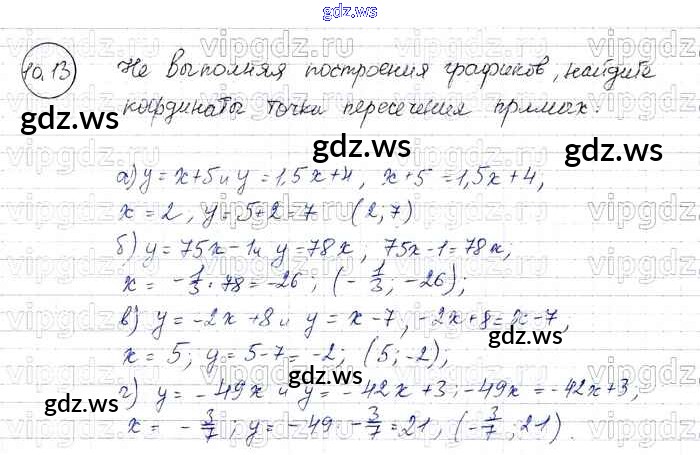 gdz.ws
10.13 Не выполняя построения графиков, найдите
координаты точки пересечения прямых.
gdz.ws
gdz.ws
а) y = x+5 и y = 1,5x+4, x+5 = 1,5x+4,
x = 2, y = 5+2 = 7 (2; 7)
б) y = 75x-1 и y = 78x; 75x-1 = 78x;
x = -1/3 · 78 = -26; (-1/3; -26);
gdz.ws
gdz.ws
в) y = -2x+8 и y = x-7, -2x+8 = x-7,
x = 5; y = 5-7 = -2; (5; -2);
г) y = -49x и y = -42x+3; -49x = -42x+3;
gdz.ws
gdz.ws
x = -3/7; y = -49 · -3/7 = 21, (-3/7; 21).